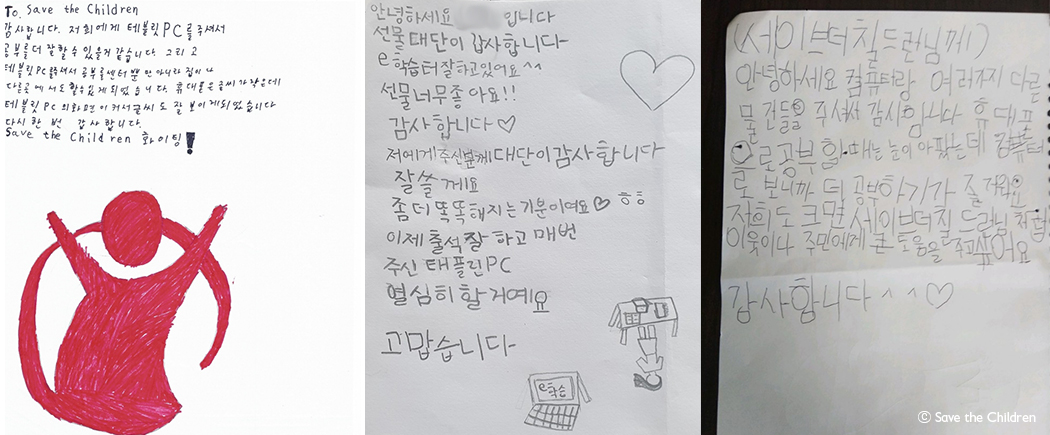 To. Save the Children
감사합니다. 저희에게 테블릿PC를 주셔서
공부를 더 잘할수 있을거 같습니다. 그리고
테블릿PC를 주셔서 공부를 센터 뿐만 아니라 집이나
다른곳에서도 할수 있게 되었습니다. 휴대폰은 글씨가 작은데
테블릿 PC의 화면이 커서 글씨도 잘 보이게 되었습니다
다시 한 번 감사합니다.
Save the Children 화이팅!
안녕하세요 입니다
선물 대단이 감사합니다
e학습터 잘하고있어요^^
선물너무좋아요!!
감사합니다♡
저에게 주신분께 대단이감사합니다
잘쓸게요
좀 더 똑똑해지는기분이여요♡ ㅎㅎ
이제 출석잘하고 매번
주신 태플린PC
열심히 할거예요
고맙습니다
e학습
(세이브더칠드런님께)
안녕하세요 컴퓨터랑 여러가지 다른
물건들을 주셔서 감사합니다 휴대폰
으로공부할때는 눈이아팠는데 컴퓨터
로 보니까 더 공부하기가 즐거워요
저희도 크면 세이브더칠드런님처럼
이웃이나 주민에게 큰 도움을 주고싶어요
감사합니다^^♡
© Save the Children